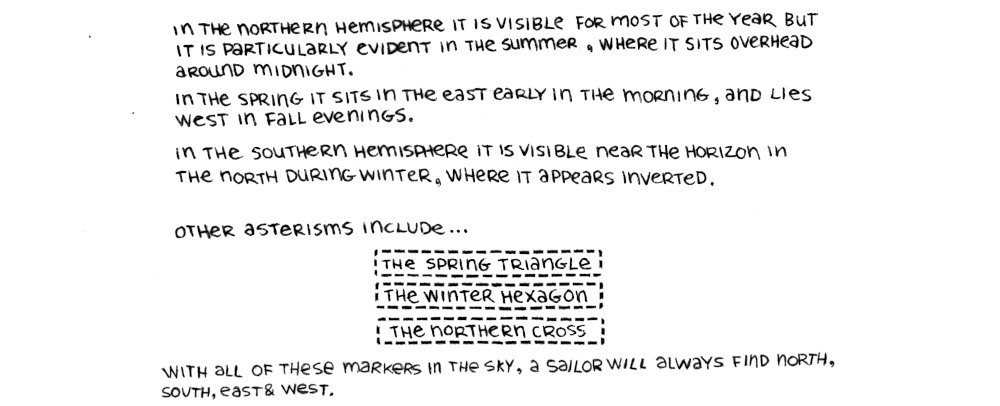 In THE nORTHERn HemISPHERE IT IS VISIBLE FOR mOST OF THE YeaR BUT
IT IS PaRTICULaRLY eVIDenT In THE Summer, WHERE IT SITS OVERHeaD
aROUnD mIDnIGHT.
In THE SPRInG IT SITS In THE eaST eaRLY In THE mORnInG, anD LIes
WeST In FaLL evenInGS.
In THE SOUTHERn HemISPHERE IT IS VISIBLE neaR THE HORIZOn In
THE nORTH DURInG WInTeR, WHERE IT aPPeaRS InveRTeD.
OTHeR aSTeRISmS InCLUDe...
THe SPRInG TRIanGLe
THe WInTeR HexaGOn
THe nORTHeRn CROSS
WITH aLL OF THese maRKeRS In THe SKY, a SaILOR WILL aLWaYS FInD nORTH,
SOUTH, eaST & WeST.